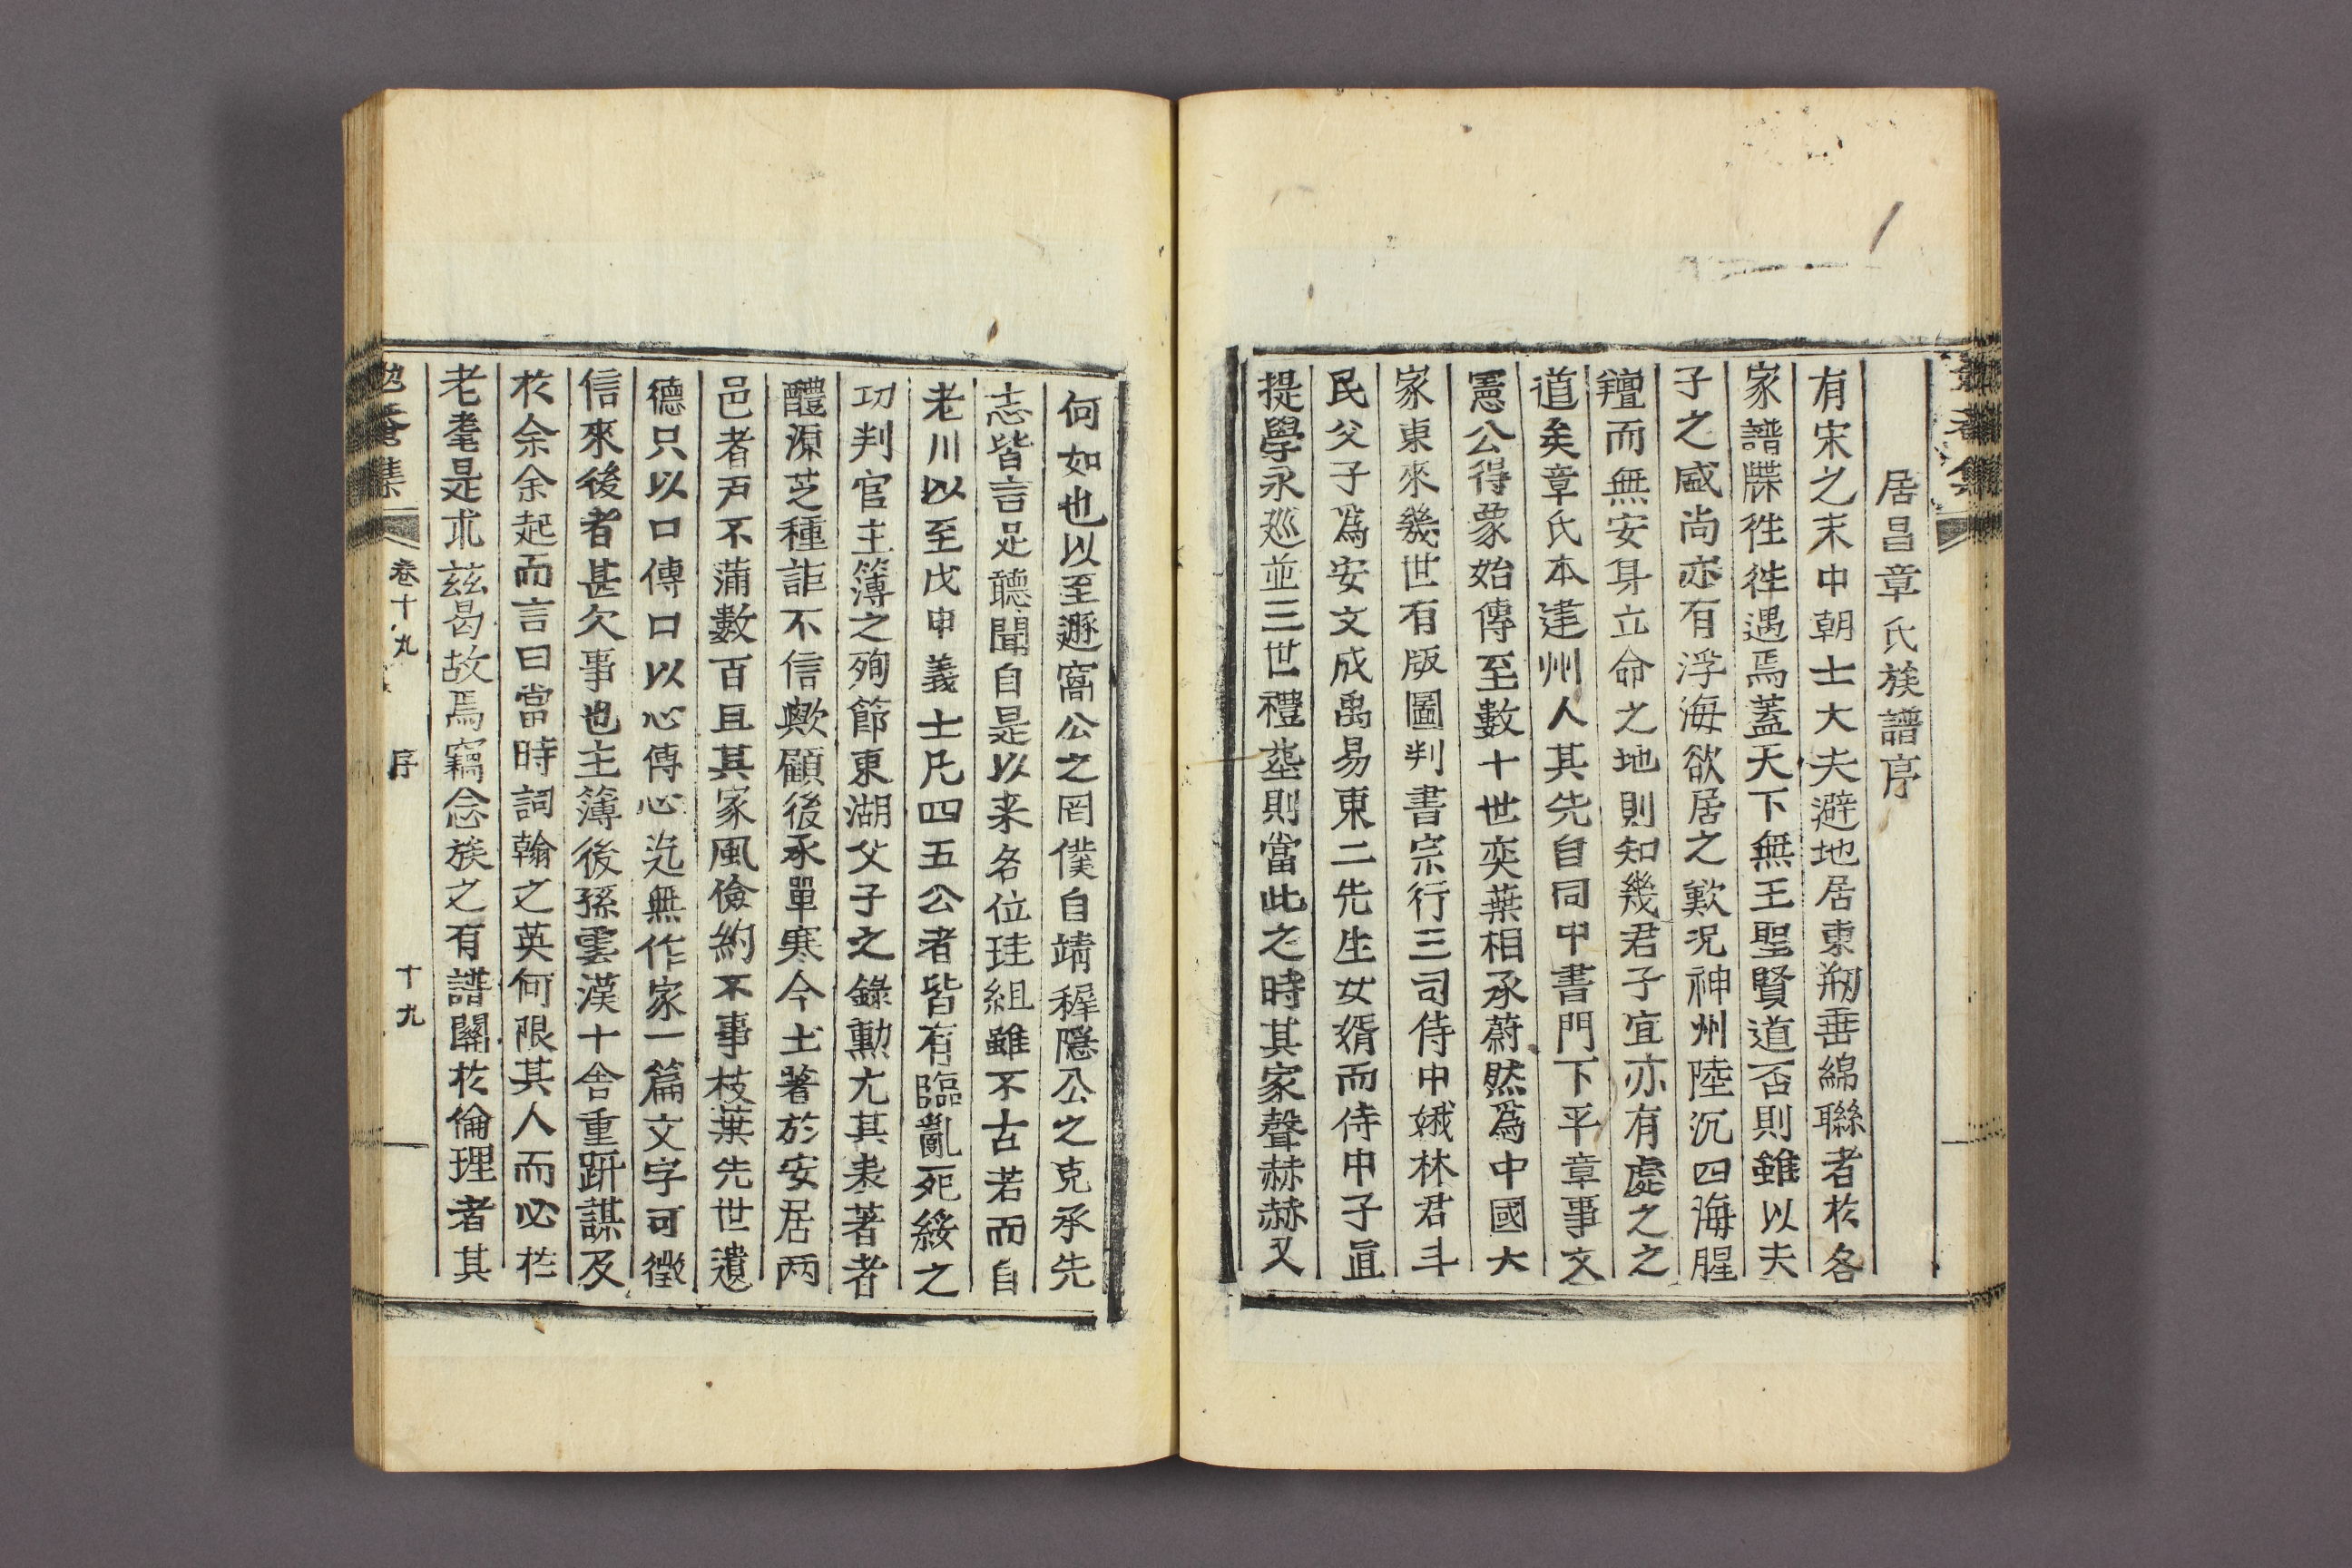 居昌章氏族譜序
有宋之末中朝士大夫避地居東剏垂綿聯者於各
家譜牒徃徃遇焉蓋天下無王聖賢道否則雖以夫
子之盛尚亦有浮海欲居之歎况神州陸沉四海腥
羶而無安身立命之地則知幾君子宜亦有處之之
道矣章氏本建州人其先自同中書門下平章事文
憲公得象始傳至數十世奕葉相承蔚然爲中國大
家東來幾世有版圖判書宗行三司侍中娥林君斗
民父子爲安文成禹易東二先生女婿而侍中子眞
提學永廵並三世禮塟則當此之時其家聲赫赫又
何如也以至遯窩公之罔僕自靖穉隱公之克承先
志皆言足聽聞自是以来各位珪組雖不古若而自
老川以至戊申義士凡四五公者皆有臨亂死綏之
功判官主簿之殉節東湖父子之錄勳尤其表著者
醴源芝種詎不信歟顧後承單寒今土著於安居两
邑者戸不蒲數百且其家風儉約不事枝葉先世遺
德只以口傳口以心傳心迄無作家一篇文字可徵
信來後者甚欠事也主簿後孫雲漢十舍重趼謀及
於余余起而言曰當時詞翰之英何限其人而必於
老耄是求兹曷故焉竊念族之有譜關於倫理者其
勉菴集 卷十九 序 十九